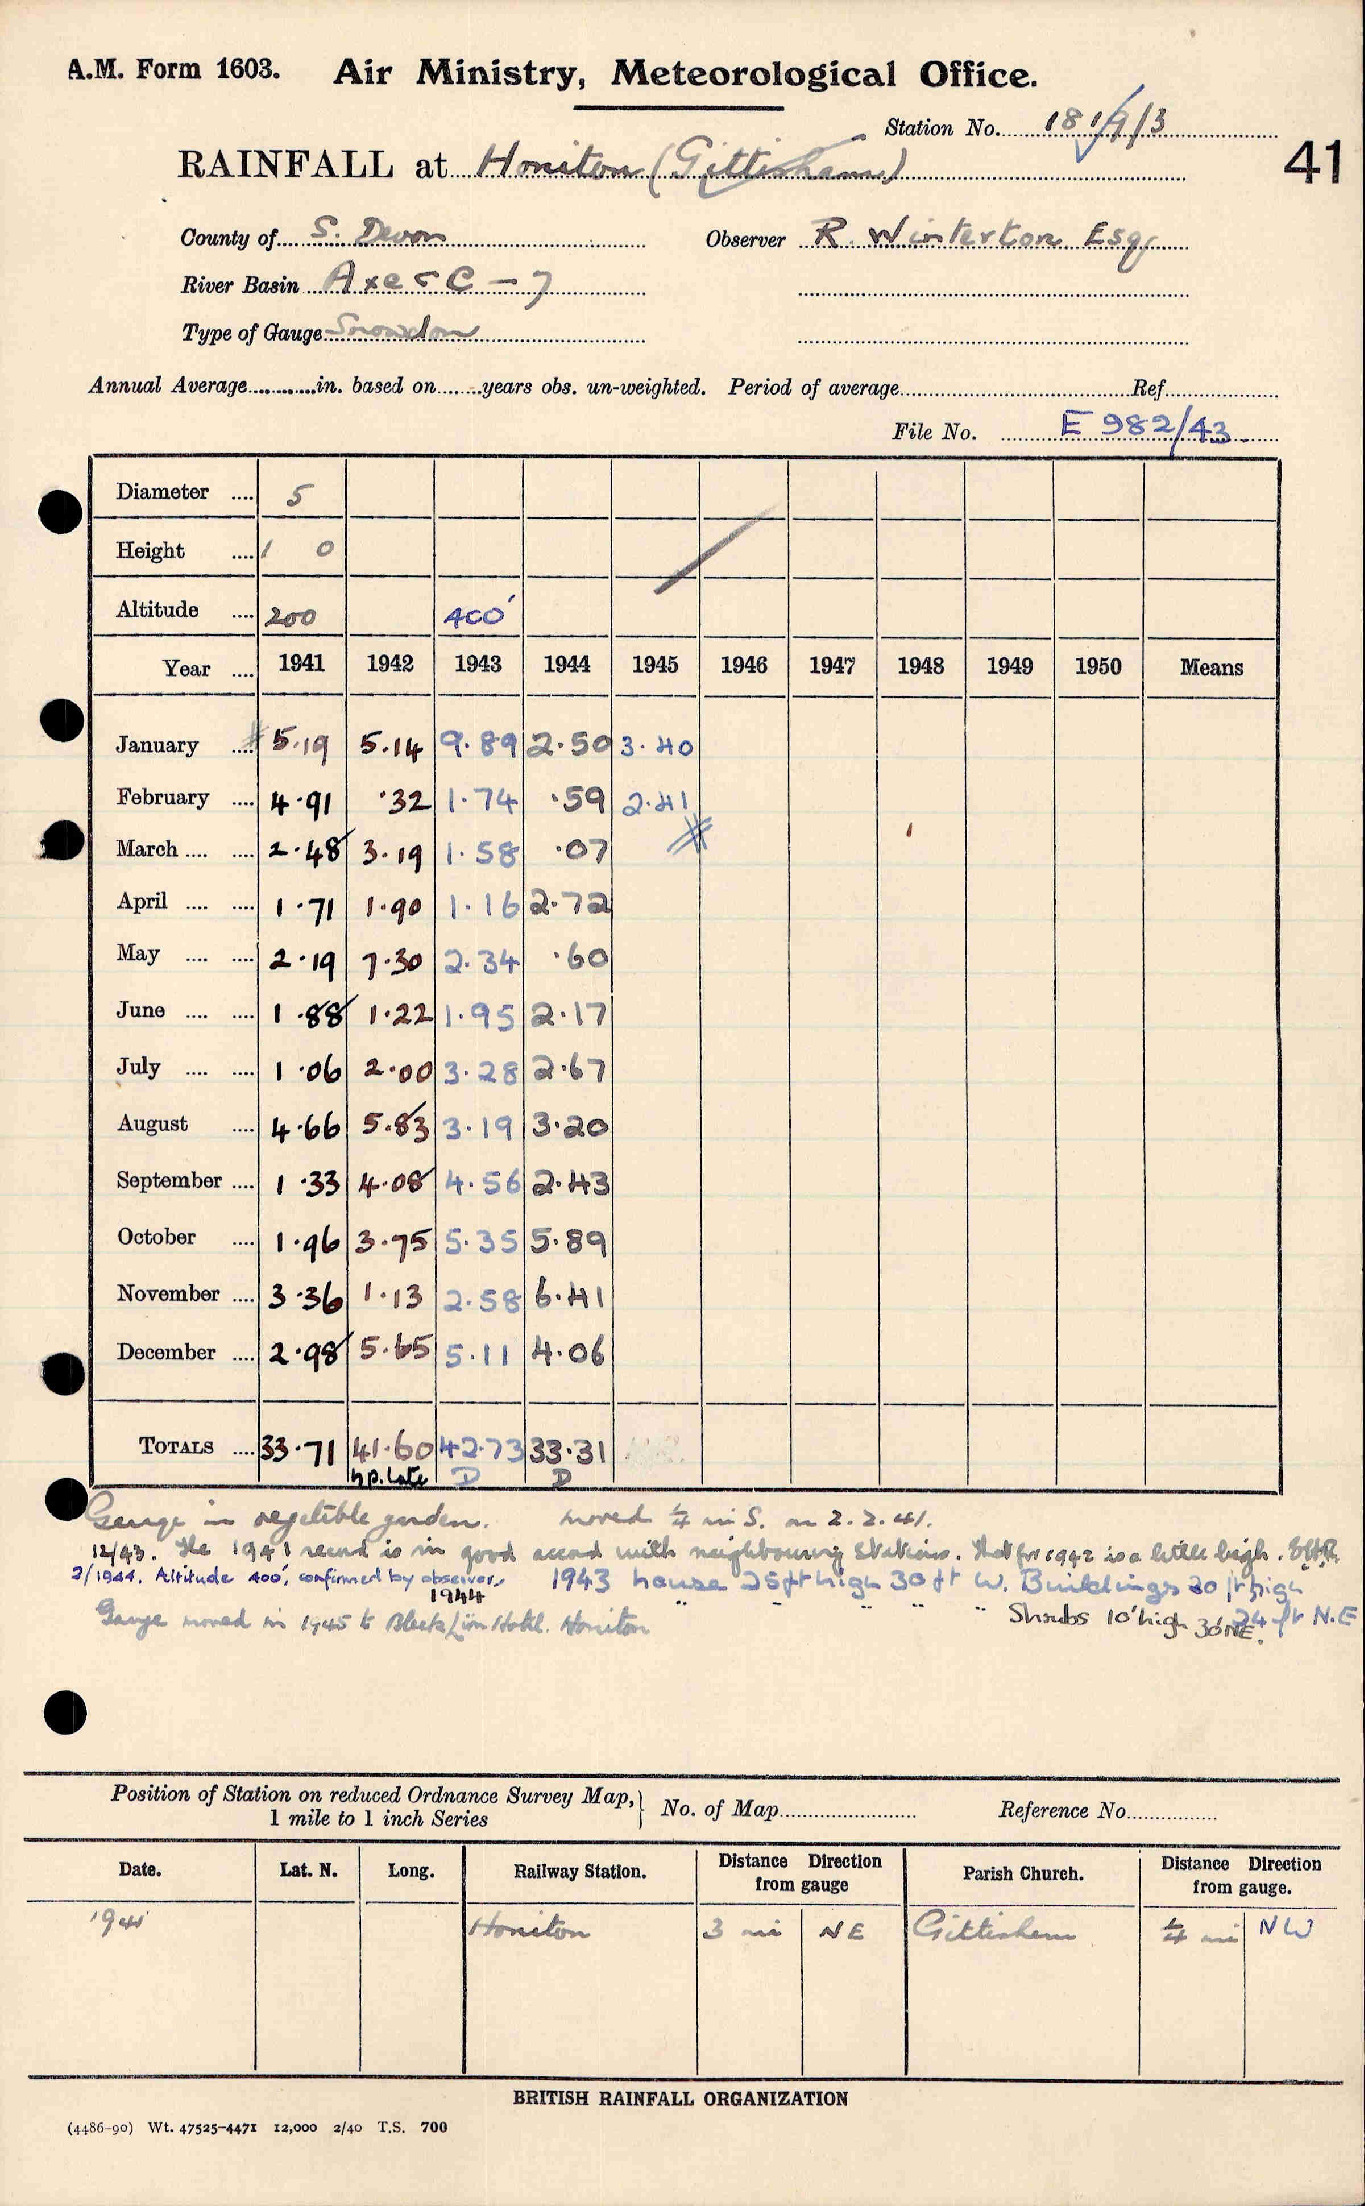 A.M. Form 1603. Air Ministry, Meteorological Office.
Station No. 181/9/3
RAINFALL at Honiton (Gittisham)
41
County of S. Devon Observer R. Winterton Esq
River Basin Axe & C - 7
Type of Gauge Snowdon
Annual Average............in. based on.......years obs. un-weighted. Period of average.......... Ref..........
File No. E 982/43.
Diameter .... 5
Height .... 1 0
Altitude .... 200 400'
Year .... 1941 1942 1943 1944 1945 1946 1947 1948 1949 1950 Means
January .... 5.19 5.14 9.89 2.50 3.40
February .... 4.91 .32 1.74 .59 2.41
March .... .... 2.48 3.19 1.58 .07
April .... .... 1.71 1.90 1.16 2.72
May .... .... 2.19 7.30 2.34 .60
June .... .... 1.88 1.22 1.95 2.17
July .... .... 1.06 2.00 3.28 2.67
August .... 4.66 5.83 3.19 3.20
September .... 1.33 4.08 4.56 2.43
October .... 1.96 3.75 5.35 5.89
November .... 3.36 1.13 2.58 6.41
December .... 2.98 5.65 5.11 4.06
TOTALS .... 33.71 41.60 42.73 33.31
n.p. late D D
Gauge in vegetible garden. moved ¼ mi S. on 2.2.41.
12/43. The 1941 record is in good accord with neighbouring stations. That for 1942 is a little high.
2/1944. Altitude 400', confirmed by observer. 1943 house 25ft high 30 ft W. Buildings 20 ft high 24 ft N.E
1944 " " " " Shrubs 10' high 30' NE.
Gauge moved in 1945 to Black Lion Hotel. Honiton
Position of Station on reduced Ordnance Survey Map, 1 mile to 1 inch Series } No. of Map.......... Reference No..........
Date. Lat. N. Long. Railway Station. Distance Direction from gauge Parish Church. Distance Direction from gauge.
1941 Honiton 3 mi NE Gittisham ¼ mi NW
BRITISH RAINFALL ORGANIZATION
(4486-90) Wt. 47525-4471 12,000 2/40 T.S. 700